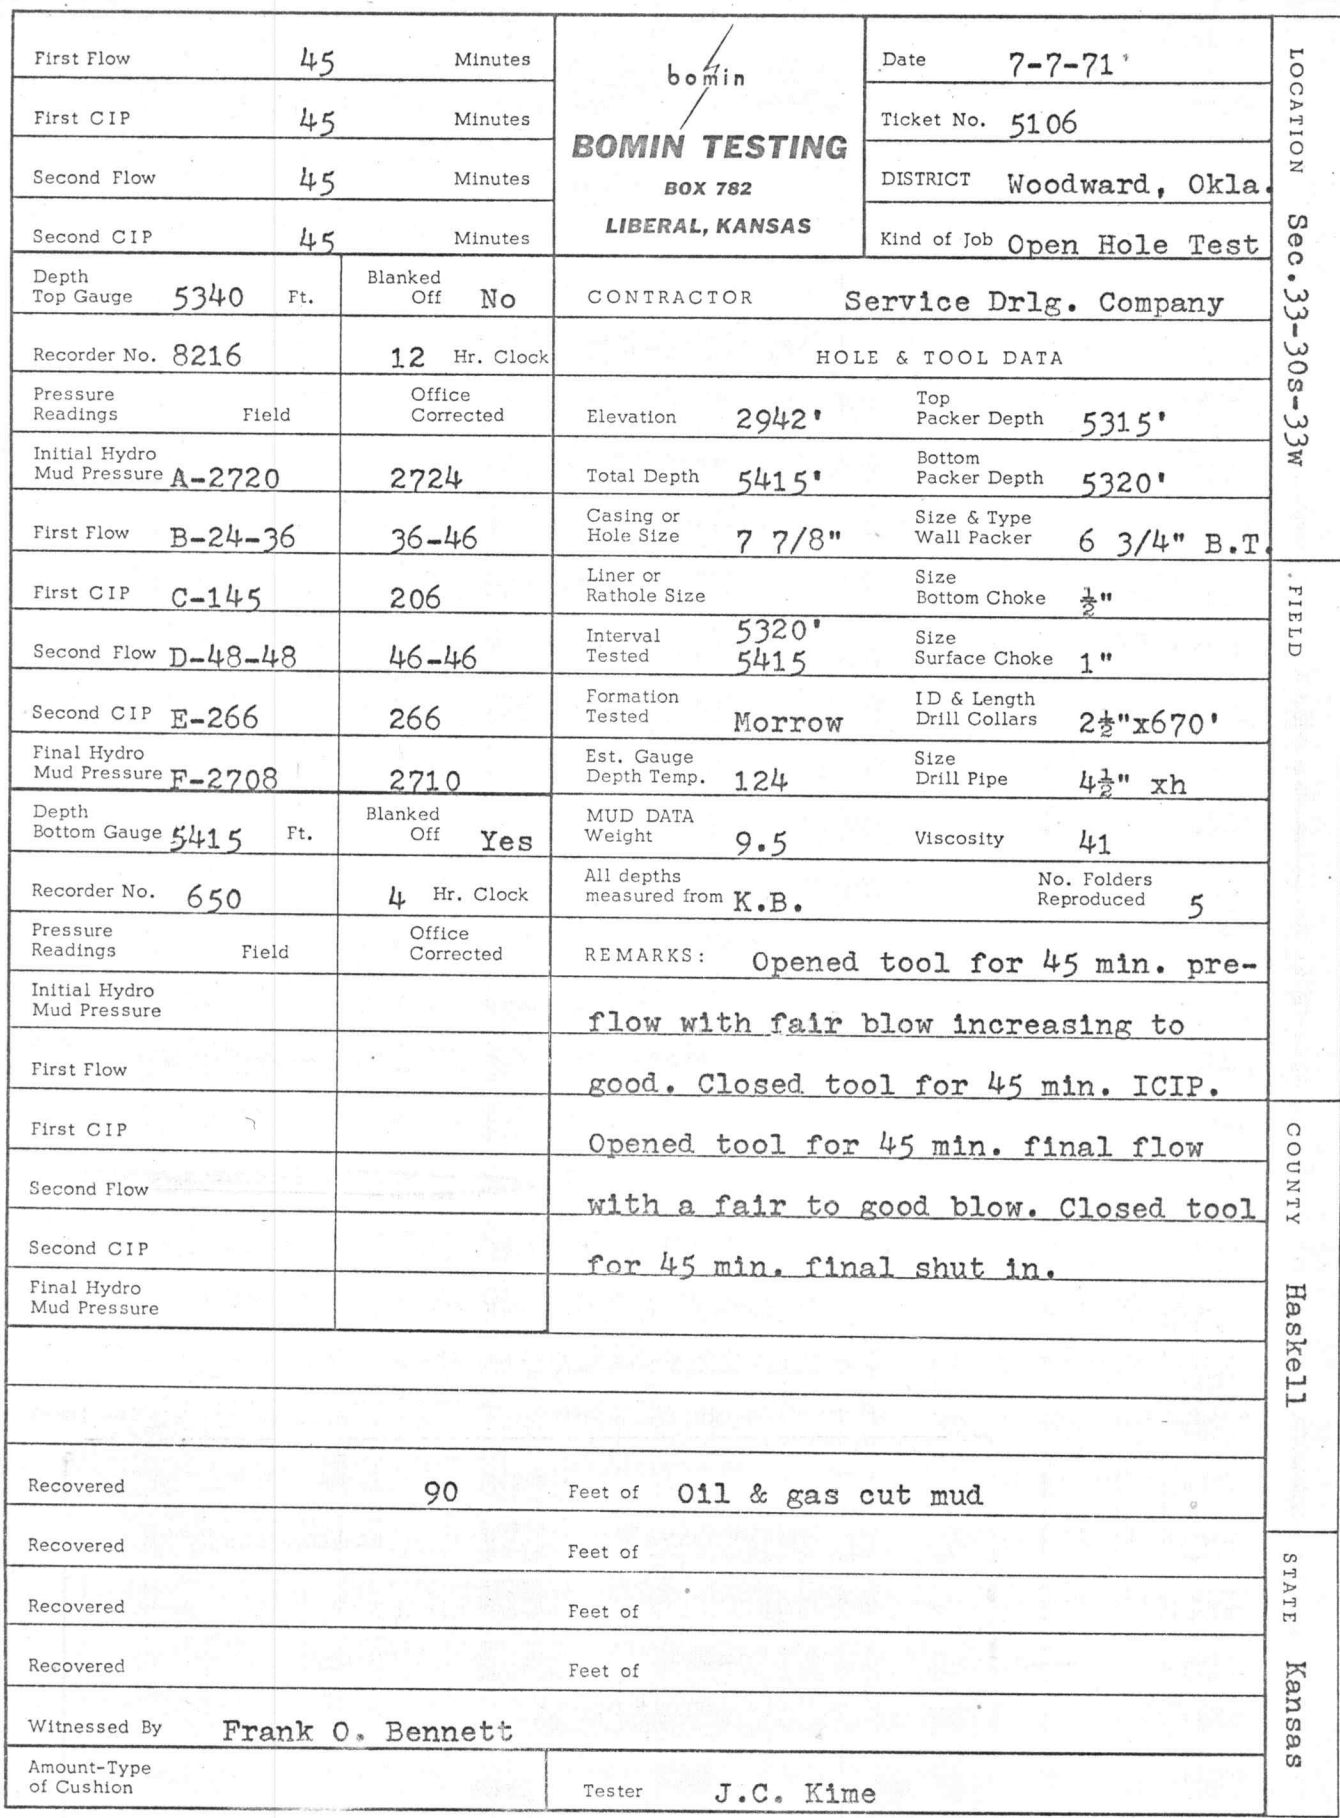 First Flow 45 Minutes
First CIP 45 Minutes
Second Flow 45 Minutes
Second CIP 45 Minutes
bomin
BOMIN TESTING
BOX 782
LIBERAL, KANSAS
Date 7-7-71
Ticket No. 5106
DISTRICT Woodward, Okla.
Kind of Job Open Hole Test
Depth
Top Gauge 5340 Ft.
Blanked
Off No
Recorder No. 8216
12 Hr. Clock
Pressure
Readings Field
Office
Corrected
Initial Hydro
Mud Pressure A-2720 2724
First Flow B-24-36 36-46
First CIP C-145 206
Second Flow D-48-48 46-46
Second CIP E-266 266
Final Hydro
Mud Pressure F-2708 2710
Depth
Bottom Gauge 5415 Ft.
Blanked
Off Yes
Recorder No. 650
4 Hr. Clock
Pressure
Readings Field
Office
Corrected
Initial Hydro
Mud Pressure
First Flow
First CIP
Second Flow
Second CIP
Final Hydro
Mud Pressure
CONTRACTOR Service Drlg. Company
HOLE & TOOL DATA
Elevation 2942'
Top
Packer Depth 5315'
Total Depth 5415'
Bottom
Packer Depth 5320'
Casing or
Hole Size 7 7/8"
Size & Type
Wall Packer 6 3/4" B.T.
Liner or
Rathole Size
Size
Bottom Choke ½"
Interval 5320'
Tested 5415
Size
Surface Choke 1"
Formation
Tested Morrow
ID & Length
Drill Collars 2½"x670'
Est. Gauge
Depth Temp. 124
Size
Drill Pipe 4½" xh
MUD DATA
Weight 9.5
Viscosity 41
All depths
measured from K.B.
No. Folders
Reproduced 5
REMARKS: Opened tool for 45 min. pre-
flow with fair blow increasing to
good. Closed tool for 45 min. ICIP.
Opened tool for 45 min. final flow
with a fair to good blow. Closed tool
for 45 min. final shut in.
Recovered 90 Feet of Oil & gas cut mud
Recovered Feet of
Recovered Feet of
Recovered Feet of
Witnessed By Frank O. Bennett
Amount-Type
of Cushion
Tester J.C. Kime
LOCATION Sec.33-30s-33w
FIELD
COUNTY Haskell
STATE Kansas